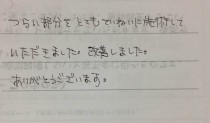 つらい部分をとてもていねいに施術して
いただきました。改善しました。
ありがとうございます。